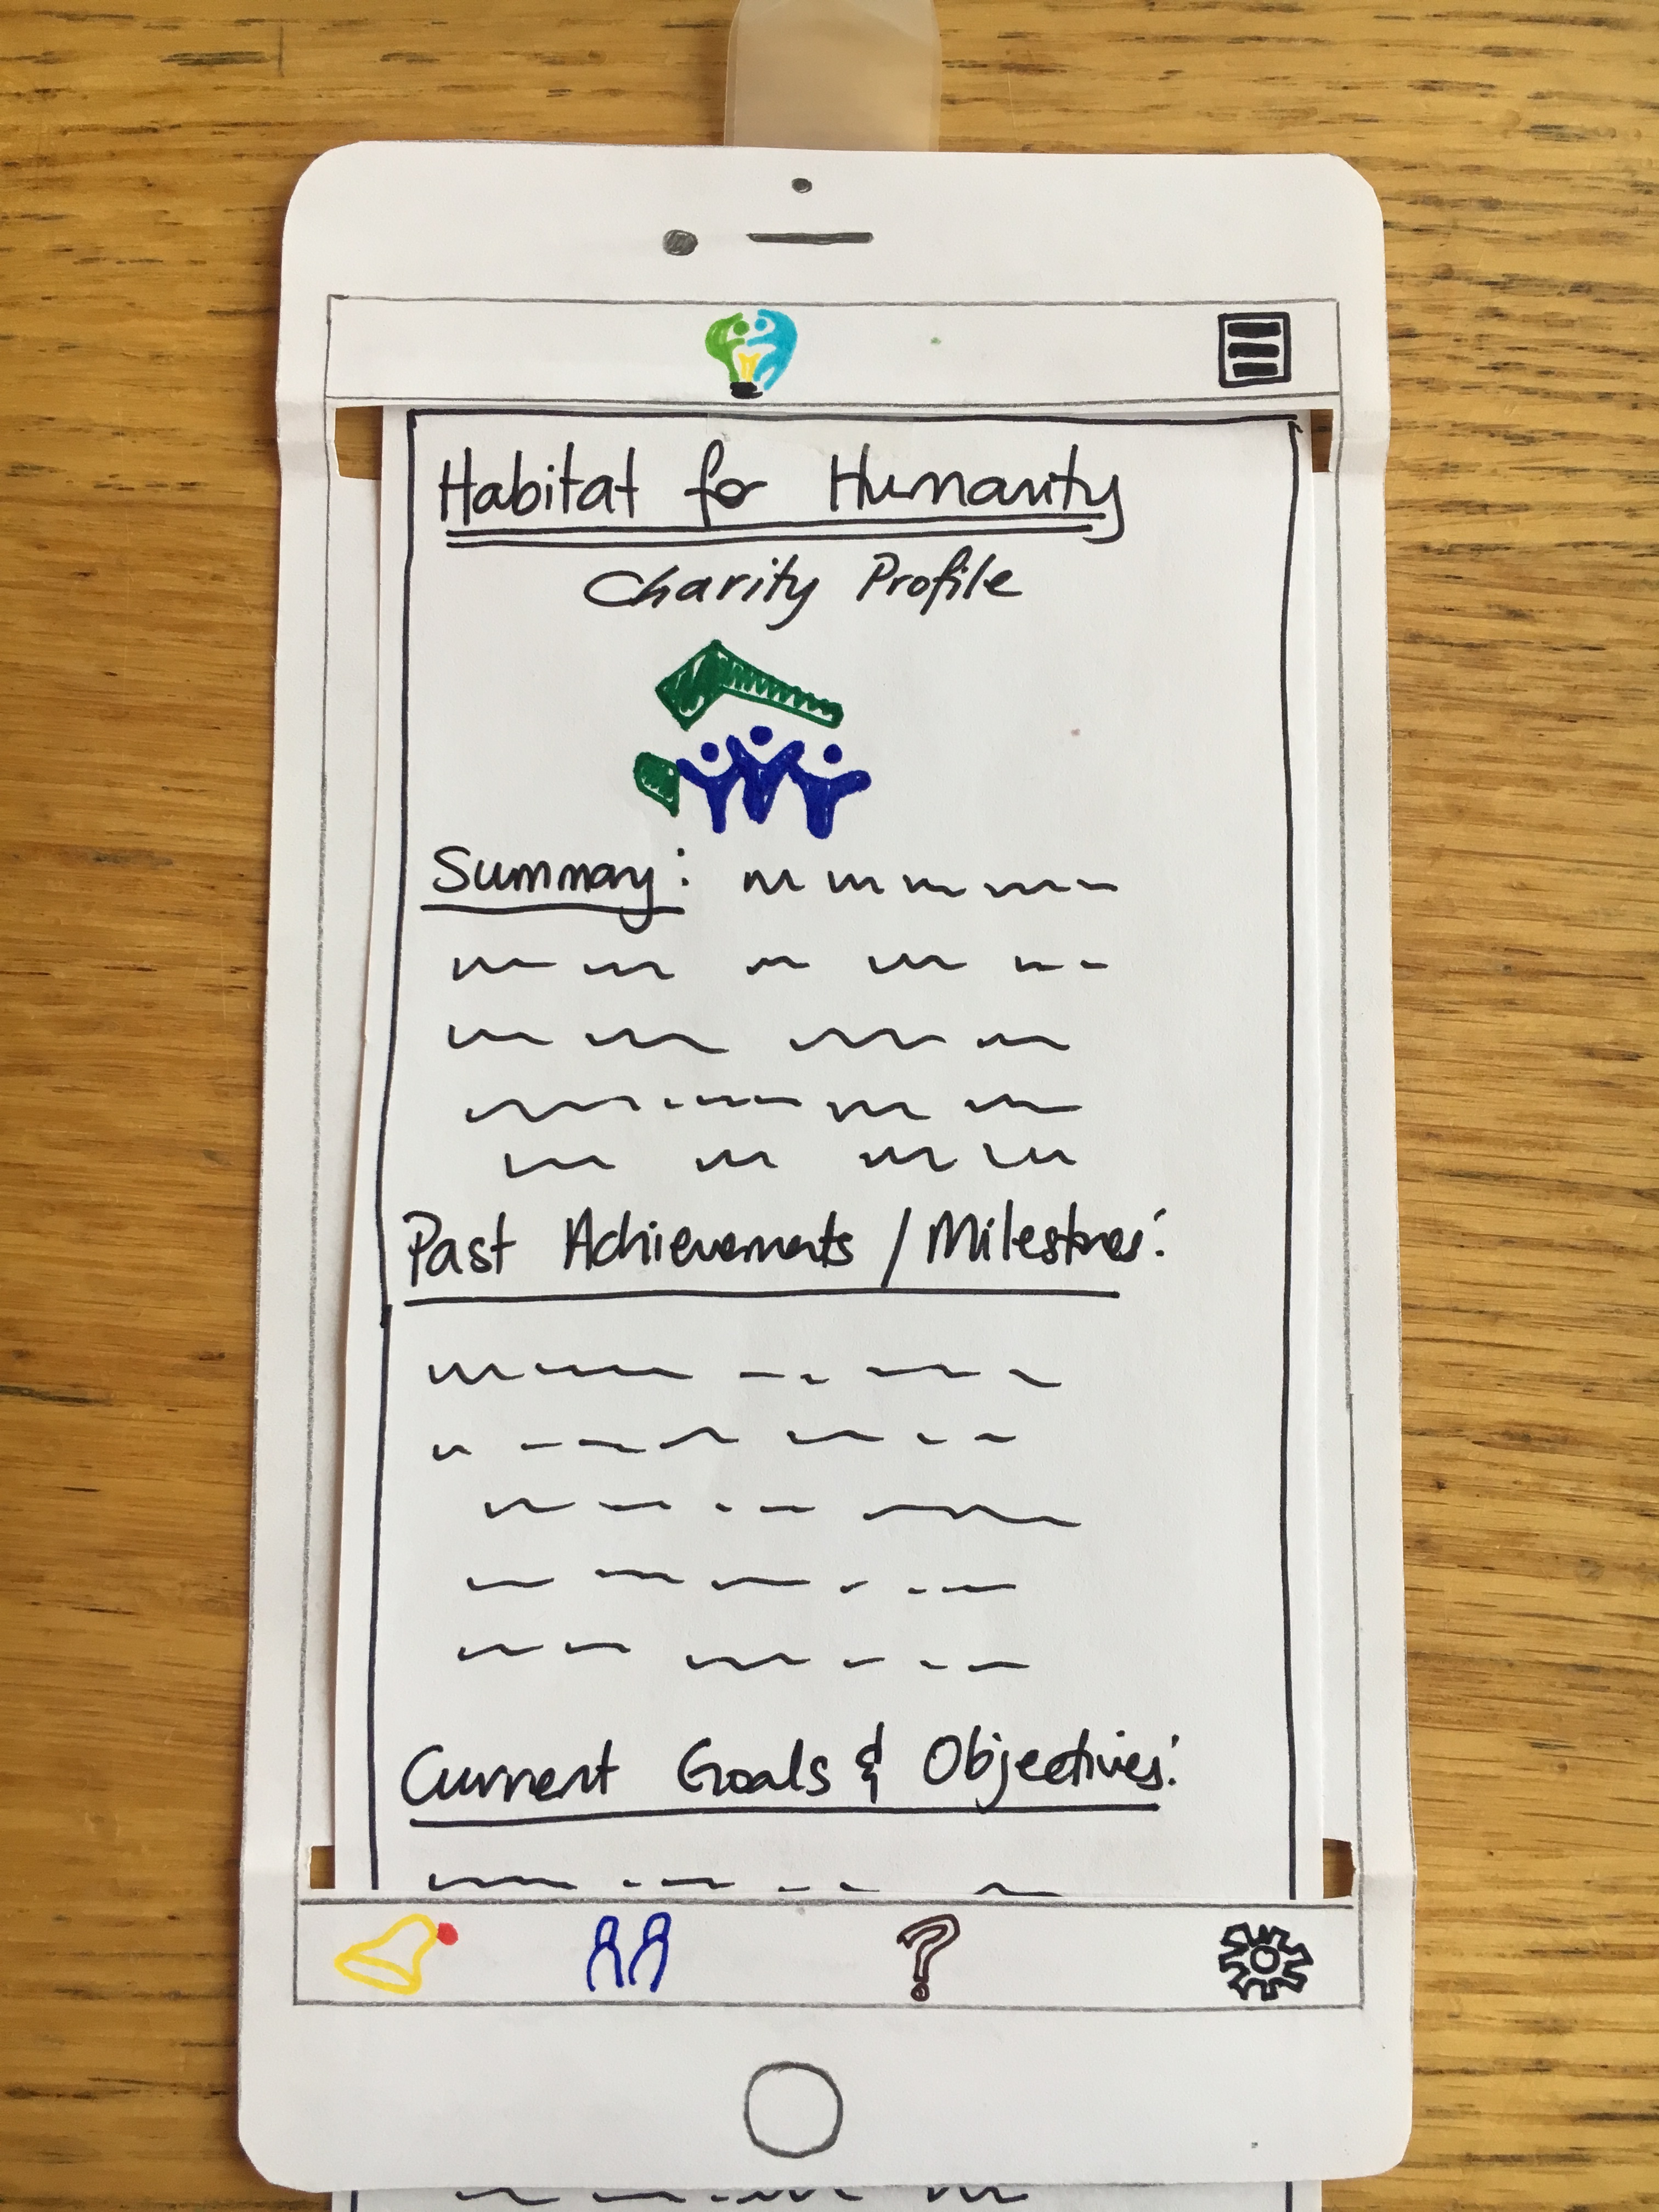 Habitat for Humanity
Charity Profile
Summary:
Past Achievements / Milestones:
Current Goals & Objectives:
?